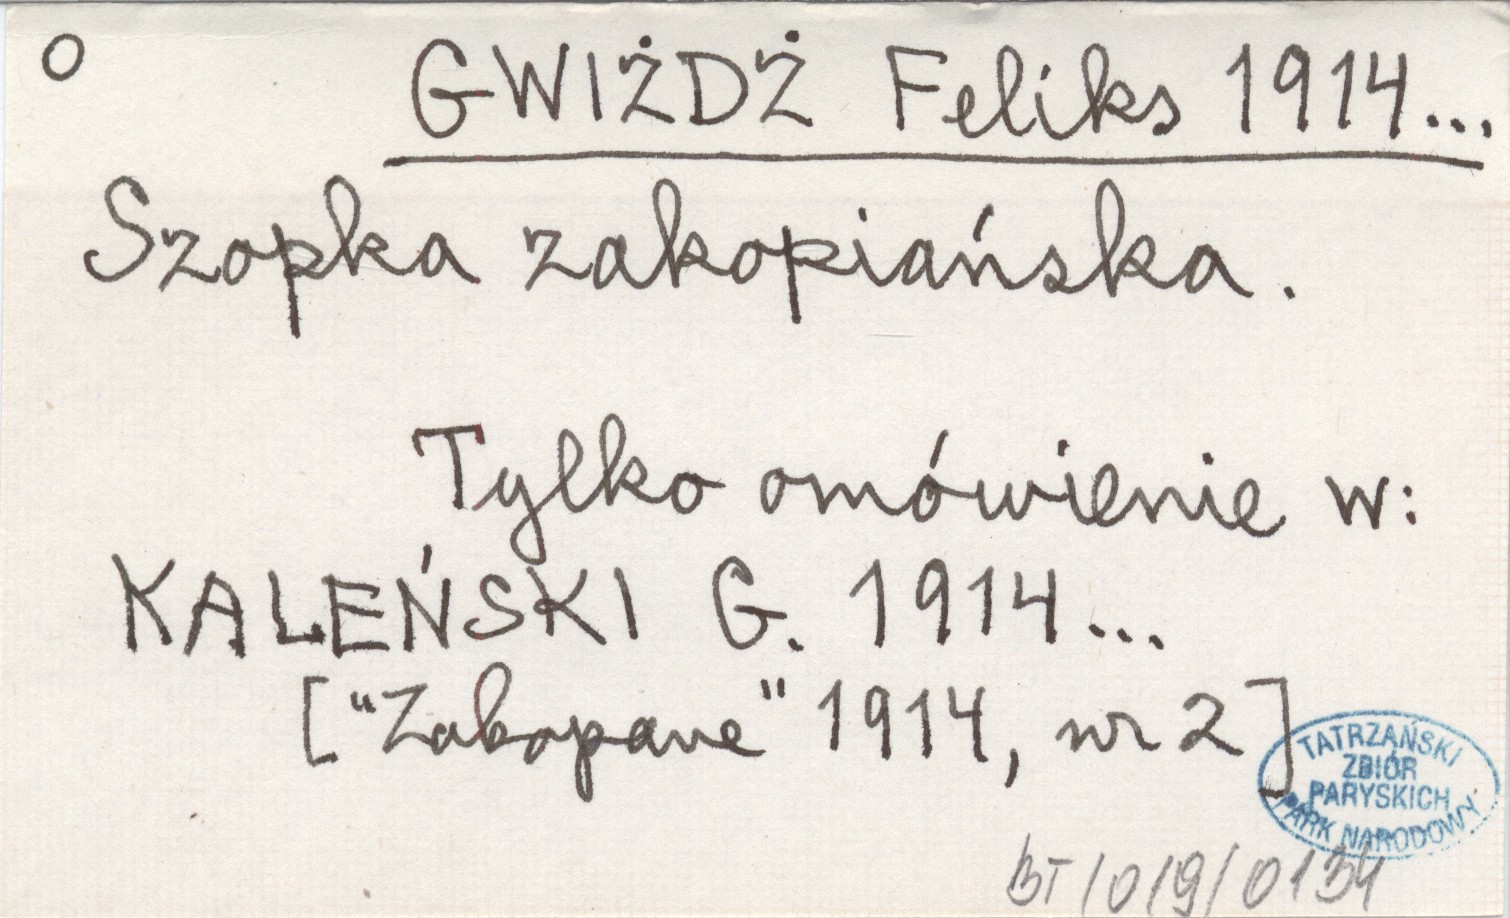 O GWIŻDŻ Feliks 1914...
Szopka zakopiańska.
Tylko omówienie w:
KALEŃSKI G. 1914...
["Zakopane" 1914, nr 2]
TATRZAŃSKI
ZBIÓR
PARYSKICH
PARK NARODOWY
BT/019/0134